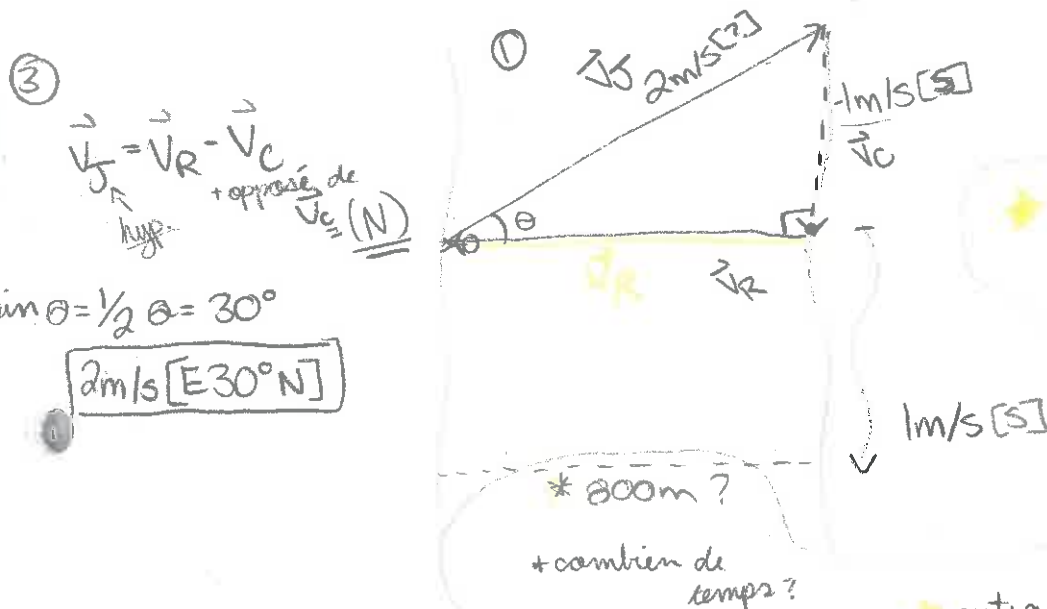 ③
V⃗J = V⃗R - V⃗C
hyp.
+ opposé de
V⃗c (N)
in θ = 1/2 θ = 30°
2m/s [E30°N]
①
2m/s [?]
-1m/s [S]
V⃗C
θ
V⃗R
V⃗R
1m/s [S]
* 800m ?
+ combien de
temps ?